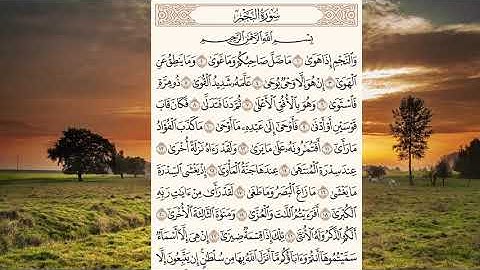 سُورَةُ النَّجْمِ
بِسْمِ اللَّهِ الرَّحْمَٰنِ الرَّحِيمِ
وَالنَّجْمِ إِذَا هَوَىٰ ١ مَا ضَلَّ صَاحِبُكُمْ وَمَا غَوَىٰ ٢ وَمَا يَنطِقُ عَنِ
الْهَوَىٰ ٣ إِنْ هُوَ إِلَّا وَحْيٌ يُوحَىٰ ٤ عَلَّمَهُ شَدِيدُ الْقُوَىٰ ٥ ذُو مِرَّةٍ
فَاسْتَوَىٰ ٦ وَهُوَ بِالْأُفُقِ الْأَعْلَىٰ ٧ ثُمَّ دَنَا فَتَدَلَّىٰ ٨ فَكَانَ قَابَ
قَوْسَيْنِ أَوْ أَدْنَىٰ ٩ فَأَوْحَىٰ إِلَىٰ عَبْدِهِ مَا أَوْحَىٰ ١٠ مَا كَذَبَ الْفُؤَادُ
مَا رَأَىٰ ١١ أَفَتُمَارُونَهُ عَلَىٰ مَا يَرَىٰ ١٢ وَلَقَدْ رَءَاهُ نَزْلَةً أُخْرَىٰ ١٣
عِندَ سِدْرَةِ الْمُنتَهَىٰ ١٤ عِندَهَا جَنَّةُ الْمَأْوَىٰ ١٥ إِذْ يَغْشَى السِّدْرَةَ
مَا يَغْشَىٰ ١٦ مَا زَاغَ الْبَصَرُ وَمَا طَغَىٰ ١٧ لَقَدْ رَأَىٰ مِنْ ءَايَٰتِ رَبِّهِ
الْكُبْرَىٰ ١٨ أَفَرَءَيْتُمُ اللَّٰتَ وَالْعُزَّىٰ ١٩ وَمَنَوٰةَ الثَّالِثَةَ الْأُخْرَىٰ ٢٠
أَلَكُمُ الذَّكَرُ وَلَهُ الْأُنثَىٰ ٢١ تِلْكَ إِذًا قِسْمَةٌ ضِيزَىٰ ٢٢ إِنْ هِيَ إِلَّا أَسْمَاءٌ
سَمَّيْتُمُوهَا أَنتُمْ وَءَابَاؤُكُم مَّا أَنزَلَ اللَّهُ بِهَا مِن سُلْطَٰنٍ إِن يَتَّبِعُونَ إِلَّا